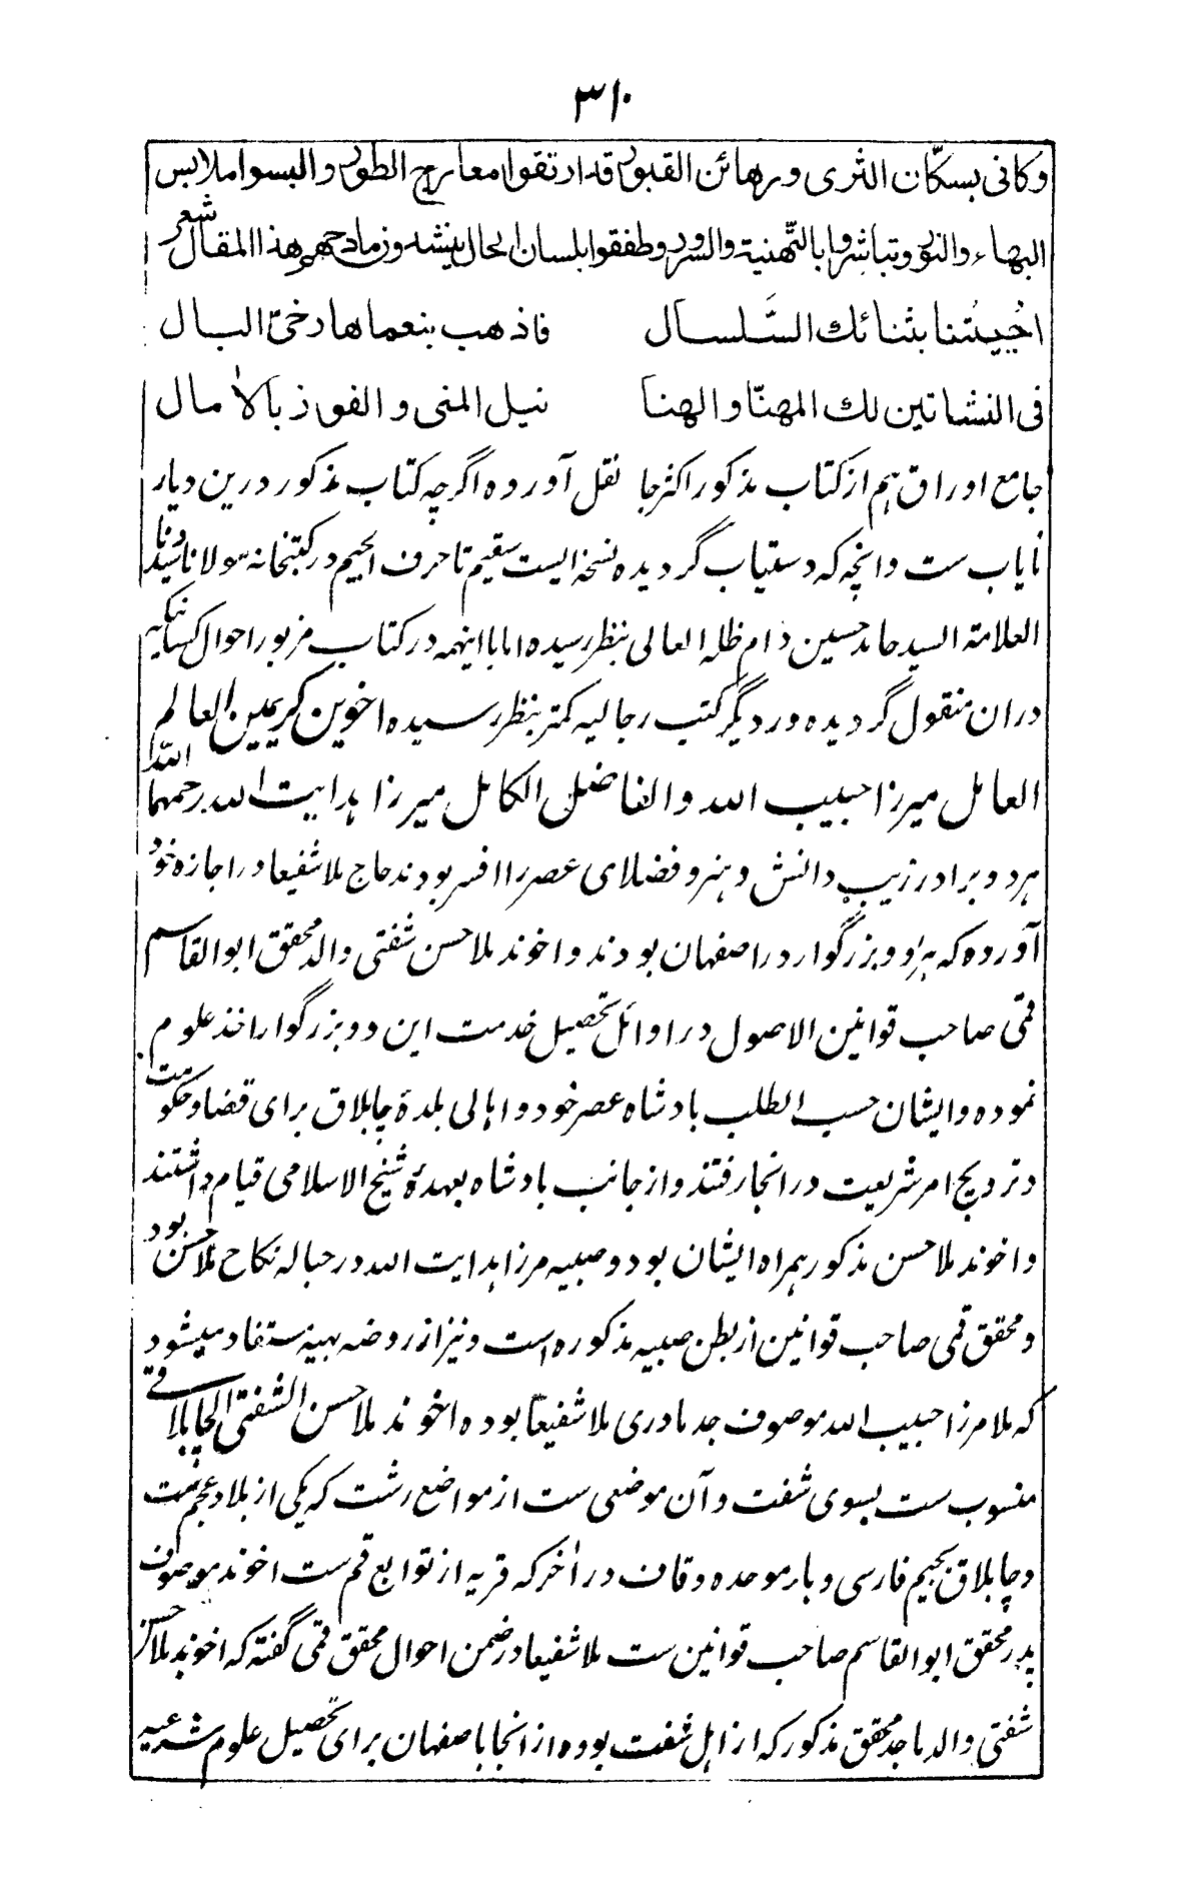 ۳۱۰
وکانی بسکّان الثری ورهائن القبور قد ارتقوا معارج الطور والبسوا ملابس
البهاء والنور وتباشروا بالتّهنیة والسرور وطفقوا بلسان الحال ینشدون مادحهم هذا المقال شعر
احییتنا بثنائك السَّلسال فاذهب بنعماها رخیّ البال
فی النشاتین لك المهنّا والهنا نیل المنی والفوز بالآمال
جامع اوراق ہم از کتاب مذکور اکثر جا نقل آورده اگرچه کتاب مذکور درین دیار
نایاب ست وانچه که دستیاب گردیده نسخه ایست سقیم تا حرف الجیم در کتبخانه مولانا سیدنا و
العلامة السید حامد حسین دام ظله العالی بنظر رسیده اما با اینهمه در کتاب مزبور احوال کسانیکه
دران منقول گردیده در دیگر کتب رجالیه کمتر بنظر رسیده اخوین کریمین العالم
العامل میرزا حبیب الله والفاضل الکامل میرزا هدایت الله رحمهما الله
هر دو برادر زیب دانش و هنر و فضلای عصر را افسر بودند حاج ملا شفیعا در اجازه خود
آورده که هر دو بزرگوار در اصفهان بودند و اخوند ملا حسن شفتی والد محقق ابو القاسم
قمی صاحب قوانین الاصول در اوائل تحصیل خدمت این دو بزرگوار اخذ علوم
نموده و ایشان حسب الطلب بادشاه عصر خود و اهالی بلدهٔ چاپلاق برای قضا و حکومت
و ترویج امر شریعت در انجا رفتند و از جانب بادشاه بعهدهٔ شیخ الاسلامی قیام داشتند
و اخوند ملا حسن مذکور همراه ایشان بود و صبیه مرزا هدایت الله در حباله نکاح ملا حسن بود
و محقق قمی صاحب قوانین از بطن صبیه مذکوره است و نیز از روضه بهیه مستفاد میشود
که ملا مرزا حبیب الله موصوف جد مادری ملا شفیعا بوده اخوند ملا حسن الشفتی الچاپلاقی
منسوب ست بسوی شفت و آن موضعی ست از مواضع رشت که یکی از بلاد عجم ست
و چاپلاق بجیم فارسی و باء موحده وقاف در اٰخر که قریه از توابع قم ست اخوند موصوف
پدر محقق ابو القاسم صاحب قوانین ست ملا شفیعا در ضمن احوال محقق قمی گفته که اخوند ملا حسن
شفتی والد ماجد محقق مذکور که از اهل شفت بوده از انجا باصفهان برای تحصیل علوم شرعیه